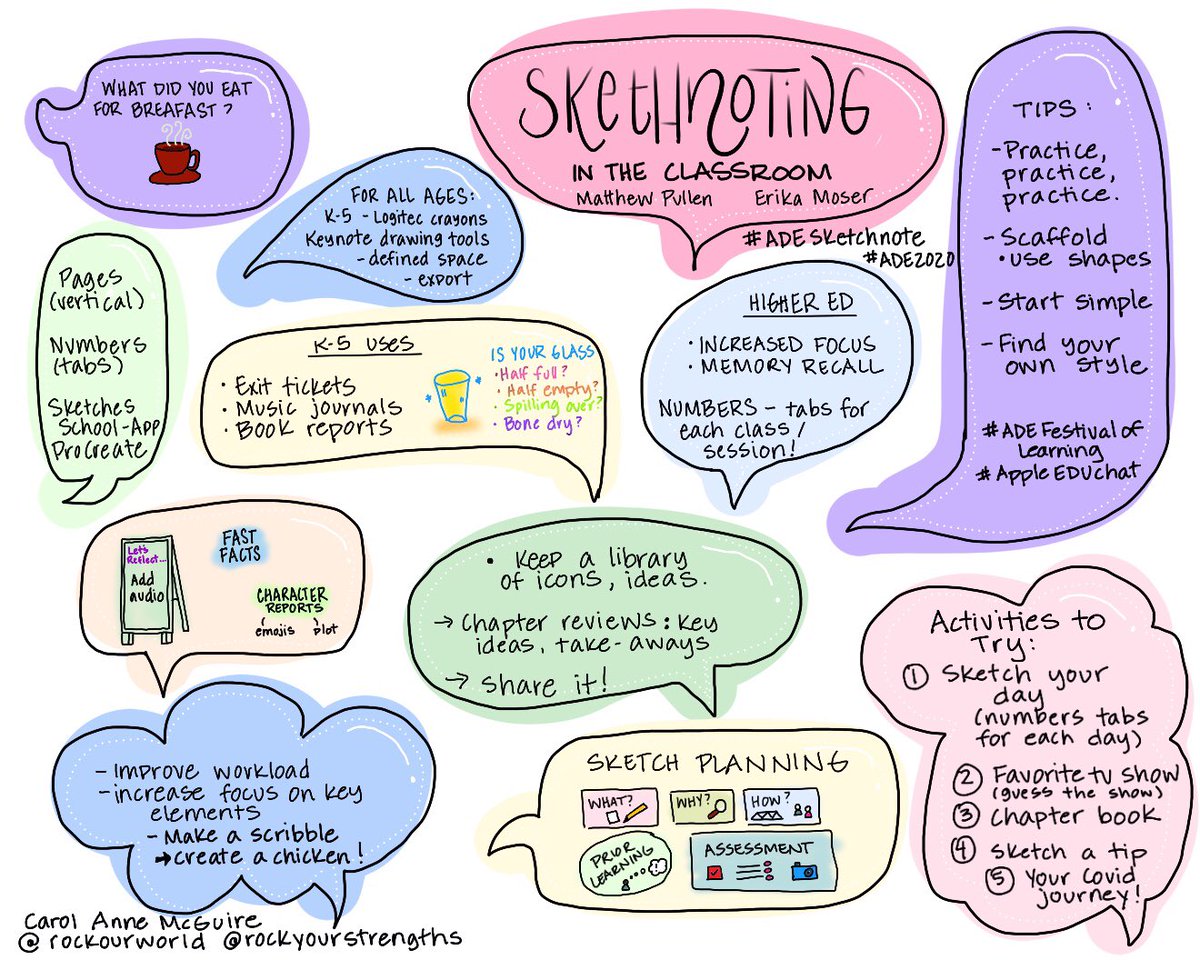 WHAT DID YOU EAT
FOR BREAFAST?
SKetHNOTING
IN THE CLASSROOM
Matthew Pullen Erika Moser
#ADESketchnote
#ADE2020
FOR ALL AGES:
K-5 - Logitec crayons
Keynote drawing tools
- defined space
- export
Pages
(vertical)
Numbers
(tabs)
Sketches
School-App
ProCreate
K-5 USES
· Exit tickets
· Music journals
· Book reports
IS YOUR GLASS
· Half full?
· Half empty?
· Spilling over?
· Bone dry?
HIGHER ED
· INCREASED FOCUS
· MEMORY RECALL
NUMBERS - tabs for
each class/
session!
TIPS:
- Practice,
practice,
practice.
- Scaffold
· use shapes
- Start simple
- Find your
own style
#ADEFestival of
Learning
#AppleEDUchat
Let's
Reflect...
Add
audio
FAST
FACTS
CHARACTER
REPORTS
emojis plot
· Keep a library
of icons, ideas.
→ Chapter reviews: Key
ideas, take-aways
→ Share it!
- Improve workload
- increase focus on key
elements
- Make a scribble
→ create a chicken!
SKETCH PLANNING
WHAT? WHY? HOW?
PRIOR
LEARNING
ASSESSMENT
Activities to
Try:
① Sketch your
day
(numbers tabs
for each day)
② Favorite tv show
(guess the show)
③ Chapter book
④ Sketch a tip
⑤ Your Covid
journey!
Carol Anne McGuire
@rockourworld @rockyourstrengths